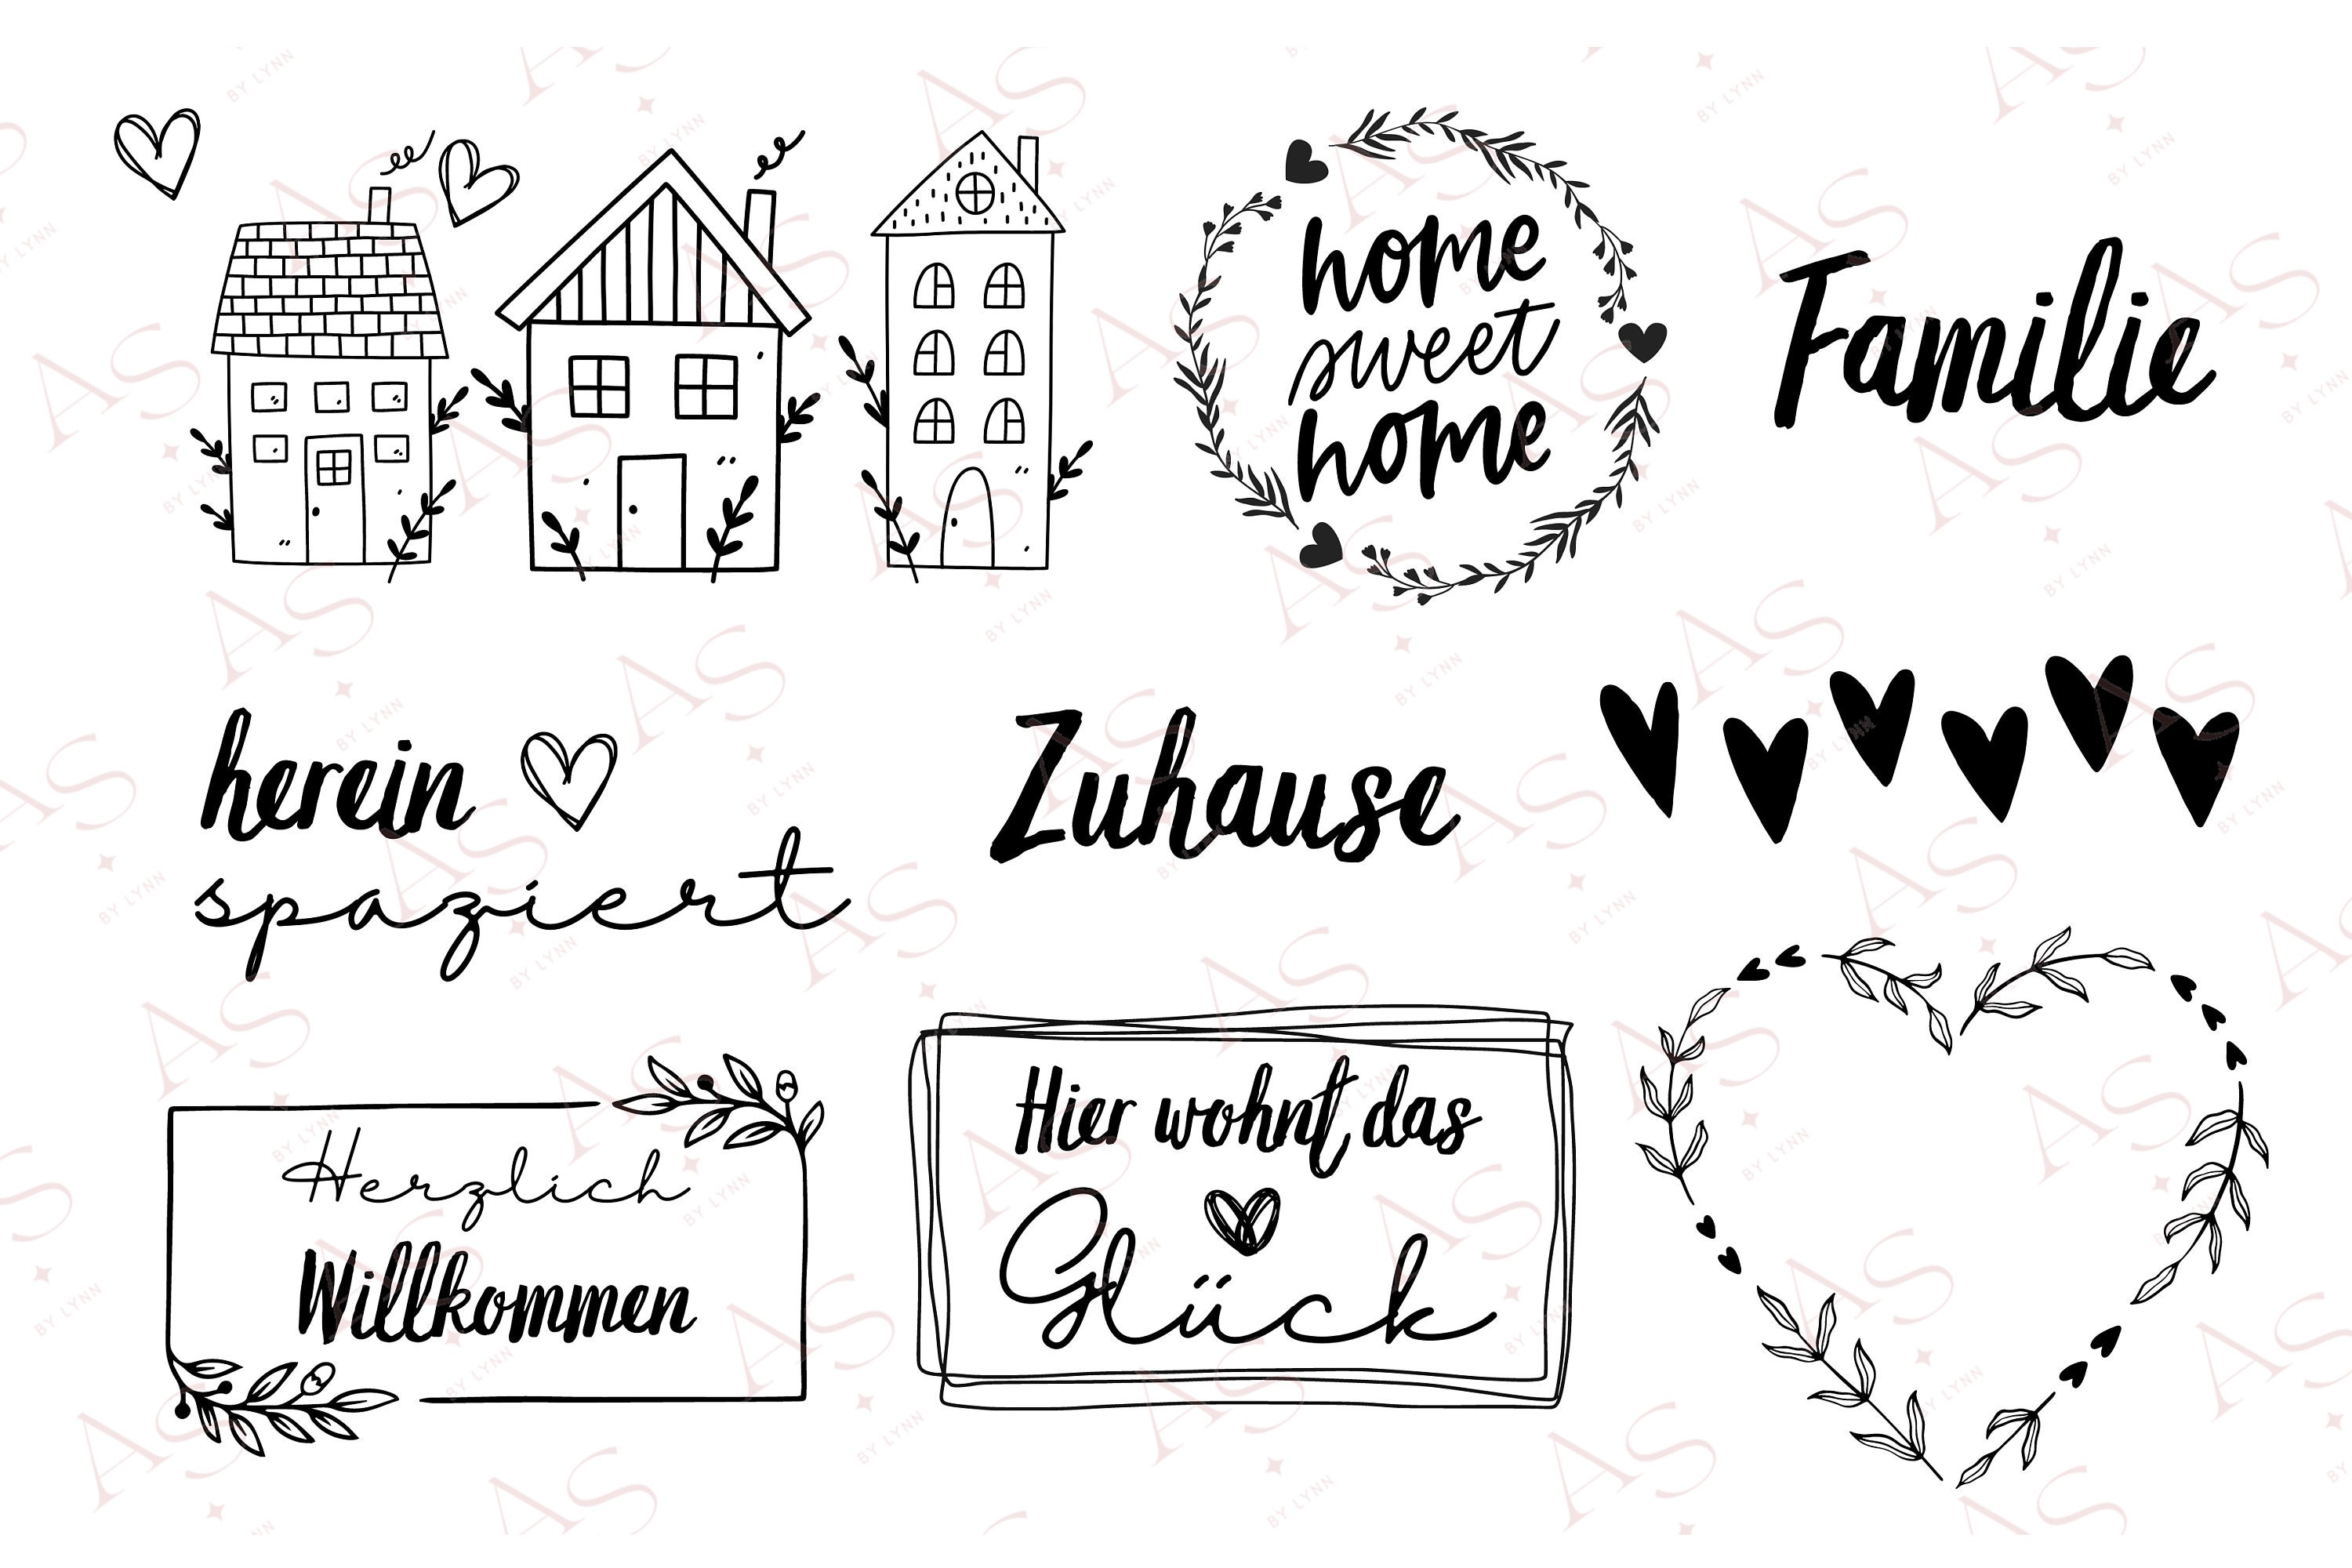 home
sweet
home
Familie
herein
spaziert
Zuhause
Herzlich
Willkommen
Hier wohnt das
Glück
AS
BY LYNN